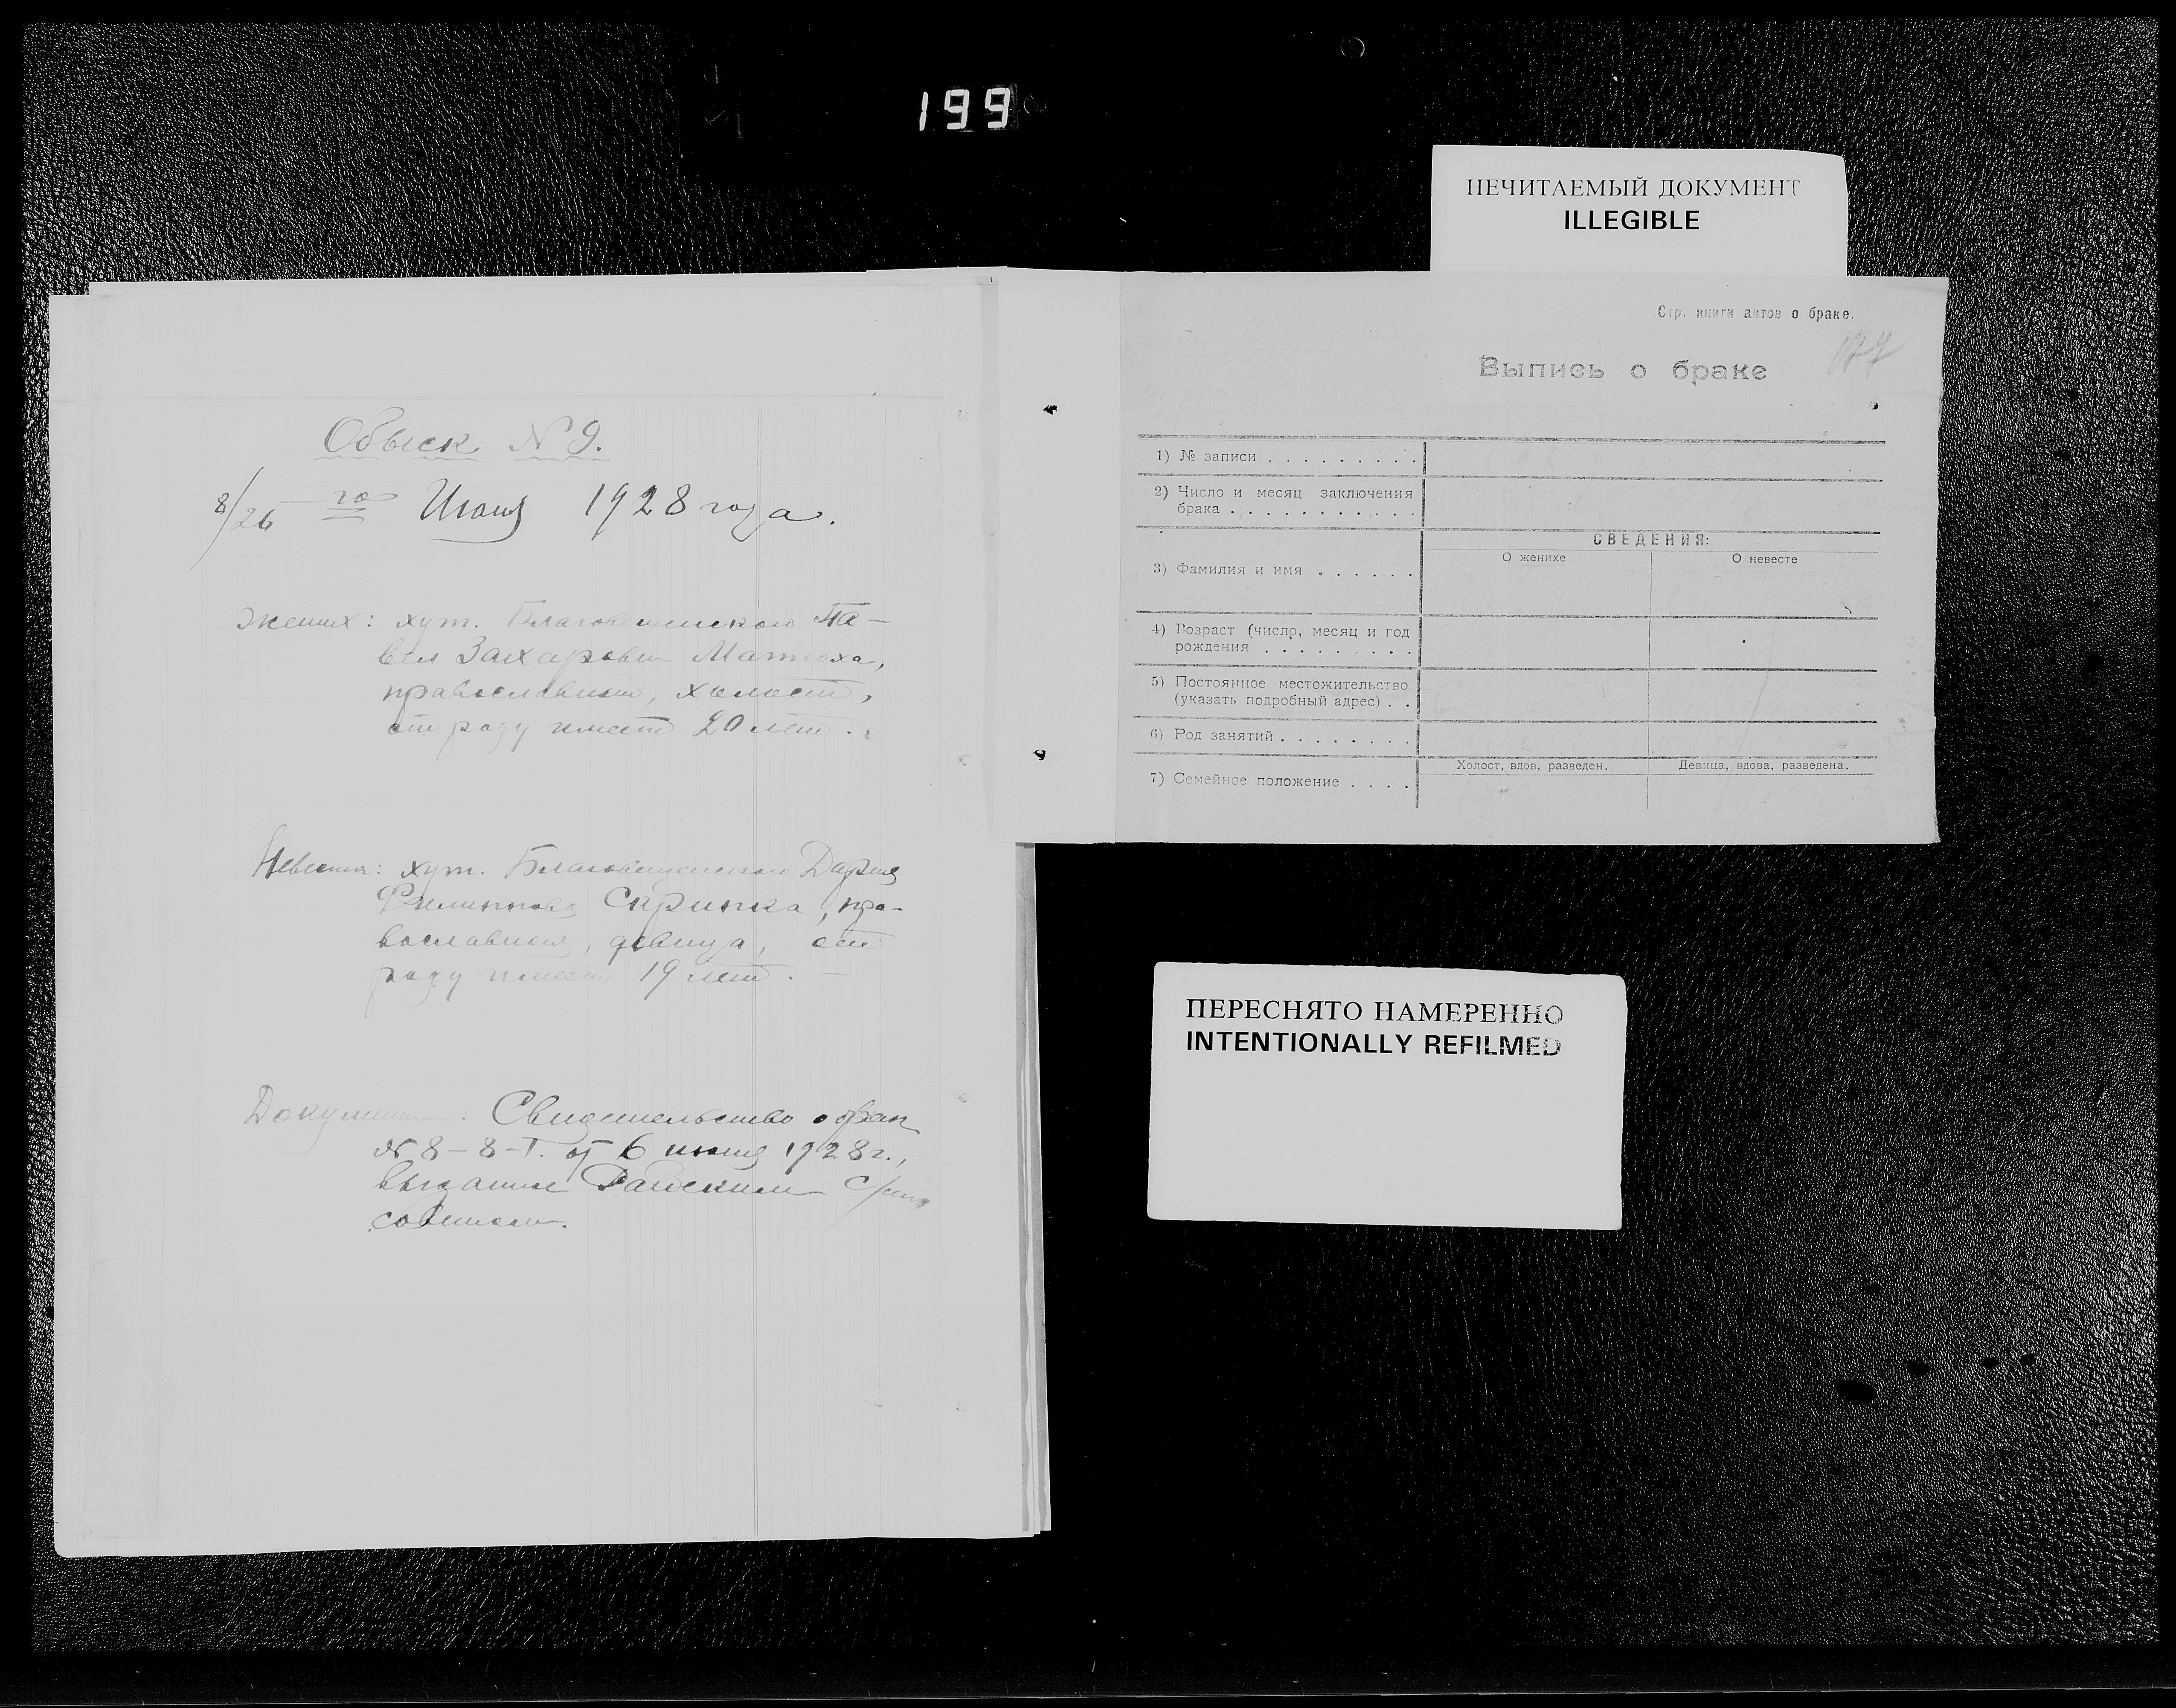 199
НЕЧИТАЕМЫЙ ДОКУМЕНТ
ILLEGIBLE
Обыск N 9.
8/26 го Июня 1928 года.
Жених: хут. Благовещенского Па-
вел Захарович Матюха,
православный, холост,
от роду имеет 20 лет.
Невеста: хут. Благовещенского Дария
Филиппова Скрипка, пра-
вославная, девица, от
роду имеет 19 лет.
Документ: Свидетельство о брак
№ 8-8-I. от 6 июня 1928 г.,
выданное
советом.
Стр. книги актов о браке.
177
Выпись о браке
1) № записи . . . . . . . . .
2) Число и месяц заключения
брака . . . . . . . . . . .
СВЕДЕНИЯ:
О женихе О невесте
3) Фамилия и имя . . . . . .
4) Возраст (число, месяц и год
рождения . . . . . . . . .
5) Постоянное местожительство
(указать подробный адрес) . .
6) Род занятий . . . . . . . .
Холост, вдов, разведен. Девица, вдова, разведена.
7) Семейное положение . . . .
ПЕРЕСНЯТО НАМЕРЕННО
INTENTIONALLY REFILMED